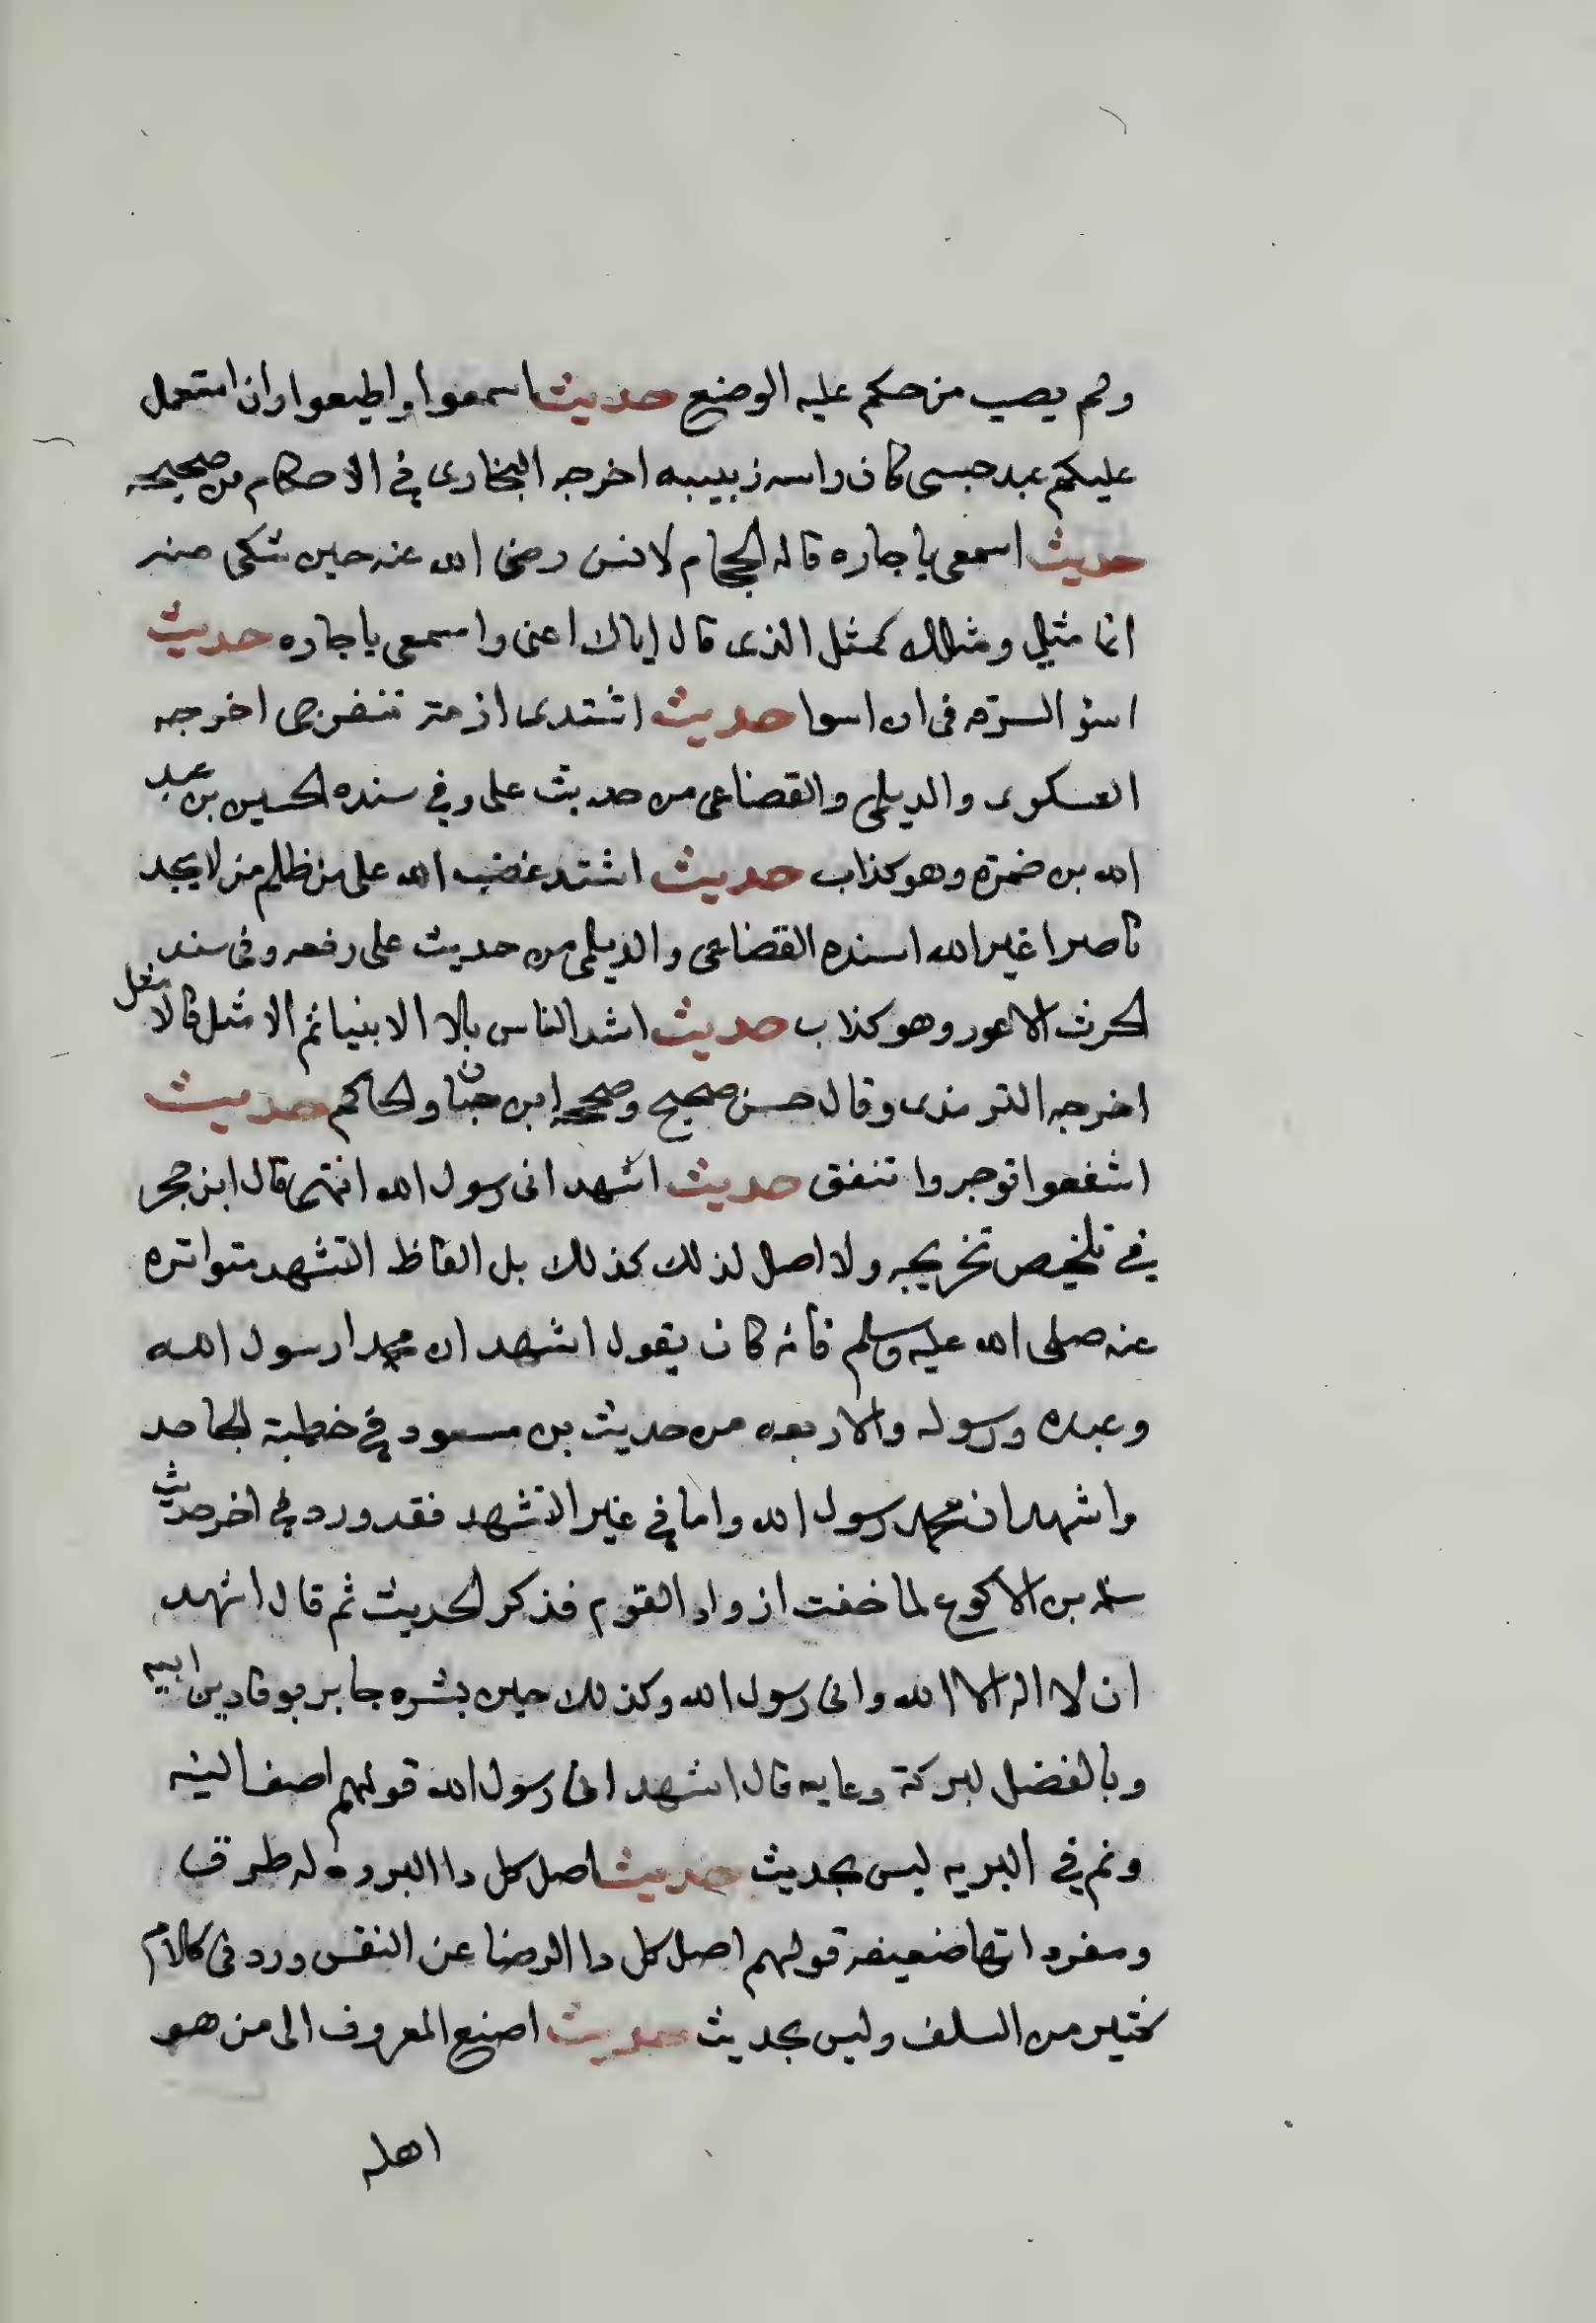 ولم يصب من حكم عليه الوضع حديث اسمعوا واطيعوا وان استعمل
عليكم عبد حبسى كان راسه زبيبه اخرجه البخارى في الاحكام من صحيحه
حديث اسمعى يا جاره قاله الحجام لانس رضى الله عنه حين شكى منه
انما مثيلى ومثلك كمثل الذى قال اياك اعنى واسمعى يا جاره حديث
اسؤ السرقه فى ان اسوا حديث اشتدى ازمة تنفرجى اخرجه
العسكرى والديلمى والقضاعى من حديث على وفي سنده الحسين بن عبد
الله بن ضمرة وهو كذاب حديث اشتد غضب الله على من ظلم من لا يجد
ناصرا غير الله اسنده القضاعى والديلمى من حديث على رفعه وفى سنده
الحرث الاعور وهو كذاب حديث اشد الناس بلاا الانبيا ثم الامثل فالامثل
اخرجه الترمذى وقال حسن صحيح وصححه ابن حبان والحاكم حديث
اشفعوا توجروا تنفق حديث اشهد انى رسول الله انتهى قال ابن حجر
في تلخيص تخريجه ولا اصل لذلك كذلك بل الفاظ التشهد متواتره
عنه صلى الله عليه وسلم فانه كان يقول اشهد ان محمدا رسول الله
وعبده ورسوله والاربعه من حديث بن مسعود في خطبة الحاجه
واشهد ان محمد رسول الله واما في غير التشهد فقد ورد في اخر حديث
سلمه بن الاكوع لما خفت ازواد القوم فذكر الحديث ثم قال اشهد
ان لا اله الا الله وانى رسول الله وكذلك حين بشره جابر بوفا دين ابيه
وبالفضل لبركة دعايه قال اشهد انى رسول الله قولهم اصف النيه
ونم في البريه ليس بحديث حديث اصل كل دا البروده له طرق
ومفرداتها ضعيفه قولهم اصل كل دا الرضا عن النفس ورد فى كلام
كثير من السلف وليس بحديث حديث اصنع المعروف الى من هو
اهله